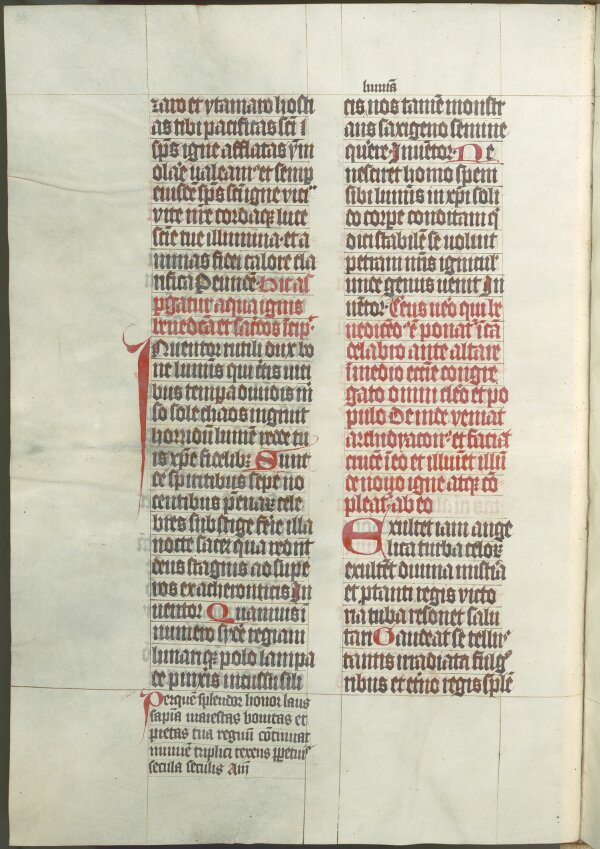 zaro et ysamaro hosti
as tibi pacificas sci i
sps igne afflatas ym
olare valeam et semp
eiusdē sps scī igne vici
vite nrē cordaqz luce
scīe tue illumina et a
nimas fidei calore cla
rifica Deinde Hic as
pgatur aqua ignis
benedicta et
Inuentor rutili dux bo
ne luminis qui certis uici
bus tempa diuidis m
so sole chaos ingruit
horridū lumē redde tu
is xpē fidelibz Sunt
ce spiritibus sepe no
centibus pene cele
bres sub stige ferie illa
nocte sacer qua redit
deus stagnis ad supe
ros ex acheronticis In
uentor Quamuis i
numero sydere regiam
lunariqz polū lampa
de pinxis incussu sili
Perquē splendor honor laus
sapia maiestas bonitas et
pietas tua regnū cōtinuat
numine triplici texens ppetuis
secula seculis Am
luminis
cis nos tamē monstr
ans saxigeno semine
querere Inuētor Ne
nesciret homo spem
sibi luminis in xpī soli
do corpe conditam q
dici stabilē se uoluit
petram nris igniculis
unde genus uenit In
uētor Cereus uero qui be
nedicendus ē ponat sup cā
delabro ante altare
in medio eccīe congre
gato omni clero et po
pulo Deinde veniat
archidyaconus et faciat
crucē in eo et illuīet illū
de nouo igne atqz cō
pleat ab eo
Exultet iam ange
lica turba celorz
exultēt diuina misteria
et p tanti regis victo
ria tuba resonet salu
taris Gaudeat se tellus
tantis irradiata fulgo
ribus et eterno regis splē